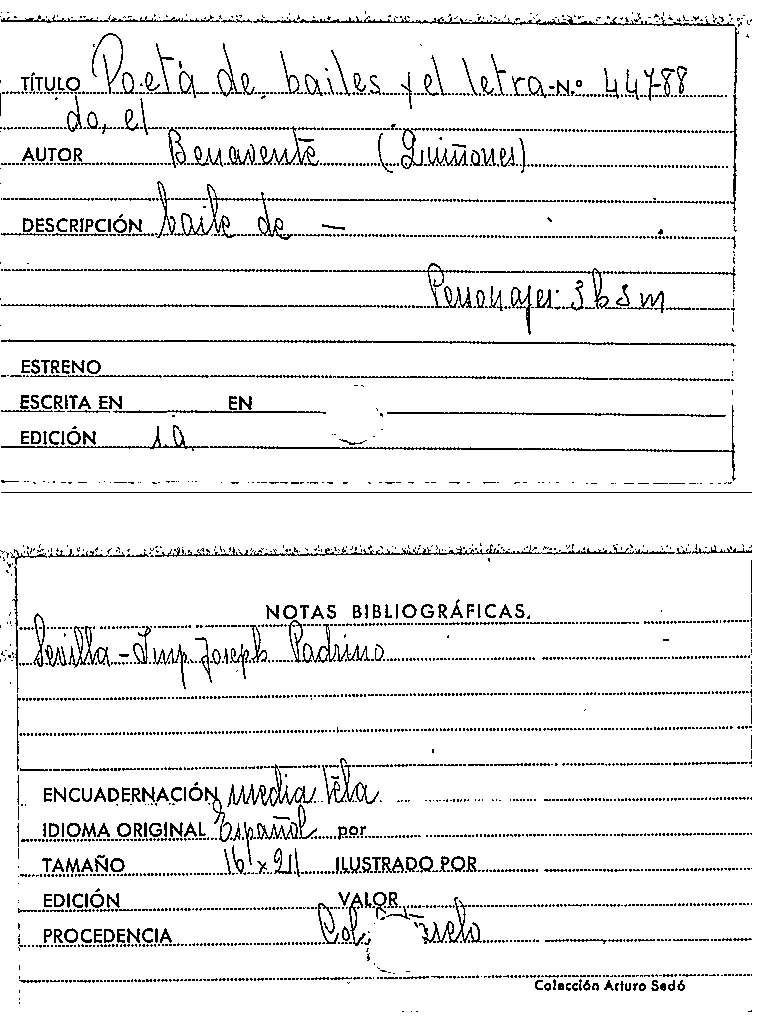 TÍTULO Poeta de bailes y el letra- N.º 44788
do, el
AUTOR Benavente (Quiñones)
DESCRIPCIÓN baile de —
Personajes: 3 h 3 m
ESTRENO
ESCRITA EN EN
EDICIÓN 1ª
NOTAS BIBLIOGRÁFICAS.
Sevilla - Imp Joseph Padrino
ENCUADERNACIÓN media tela
IDIOMA ORIGINAL Español por
TAMAÑO ILUSTRADO POR
EDICIÓN VALOR
PROCEDENCIA Col.
Colección Arturo Sedó